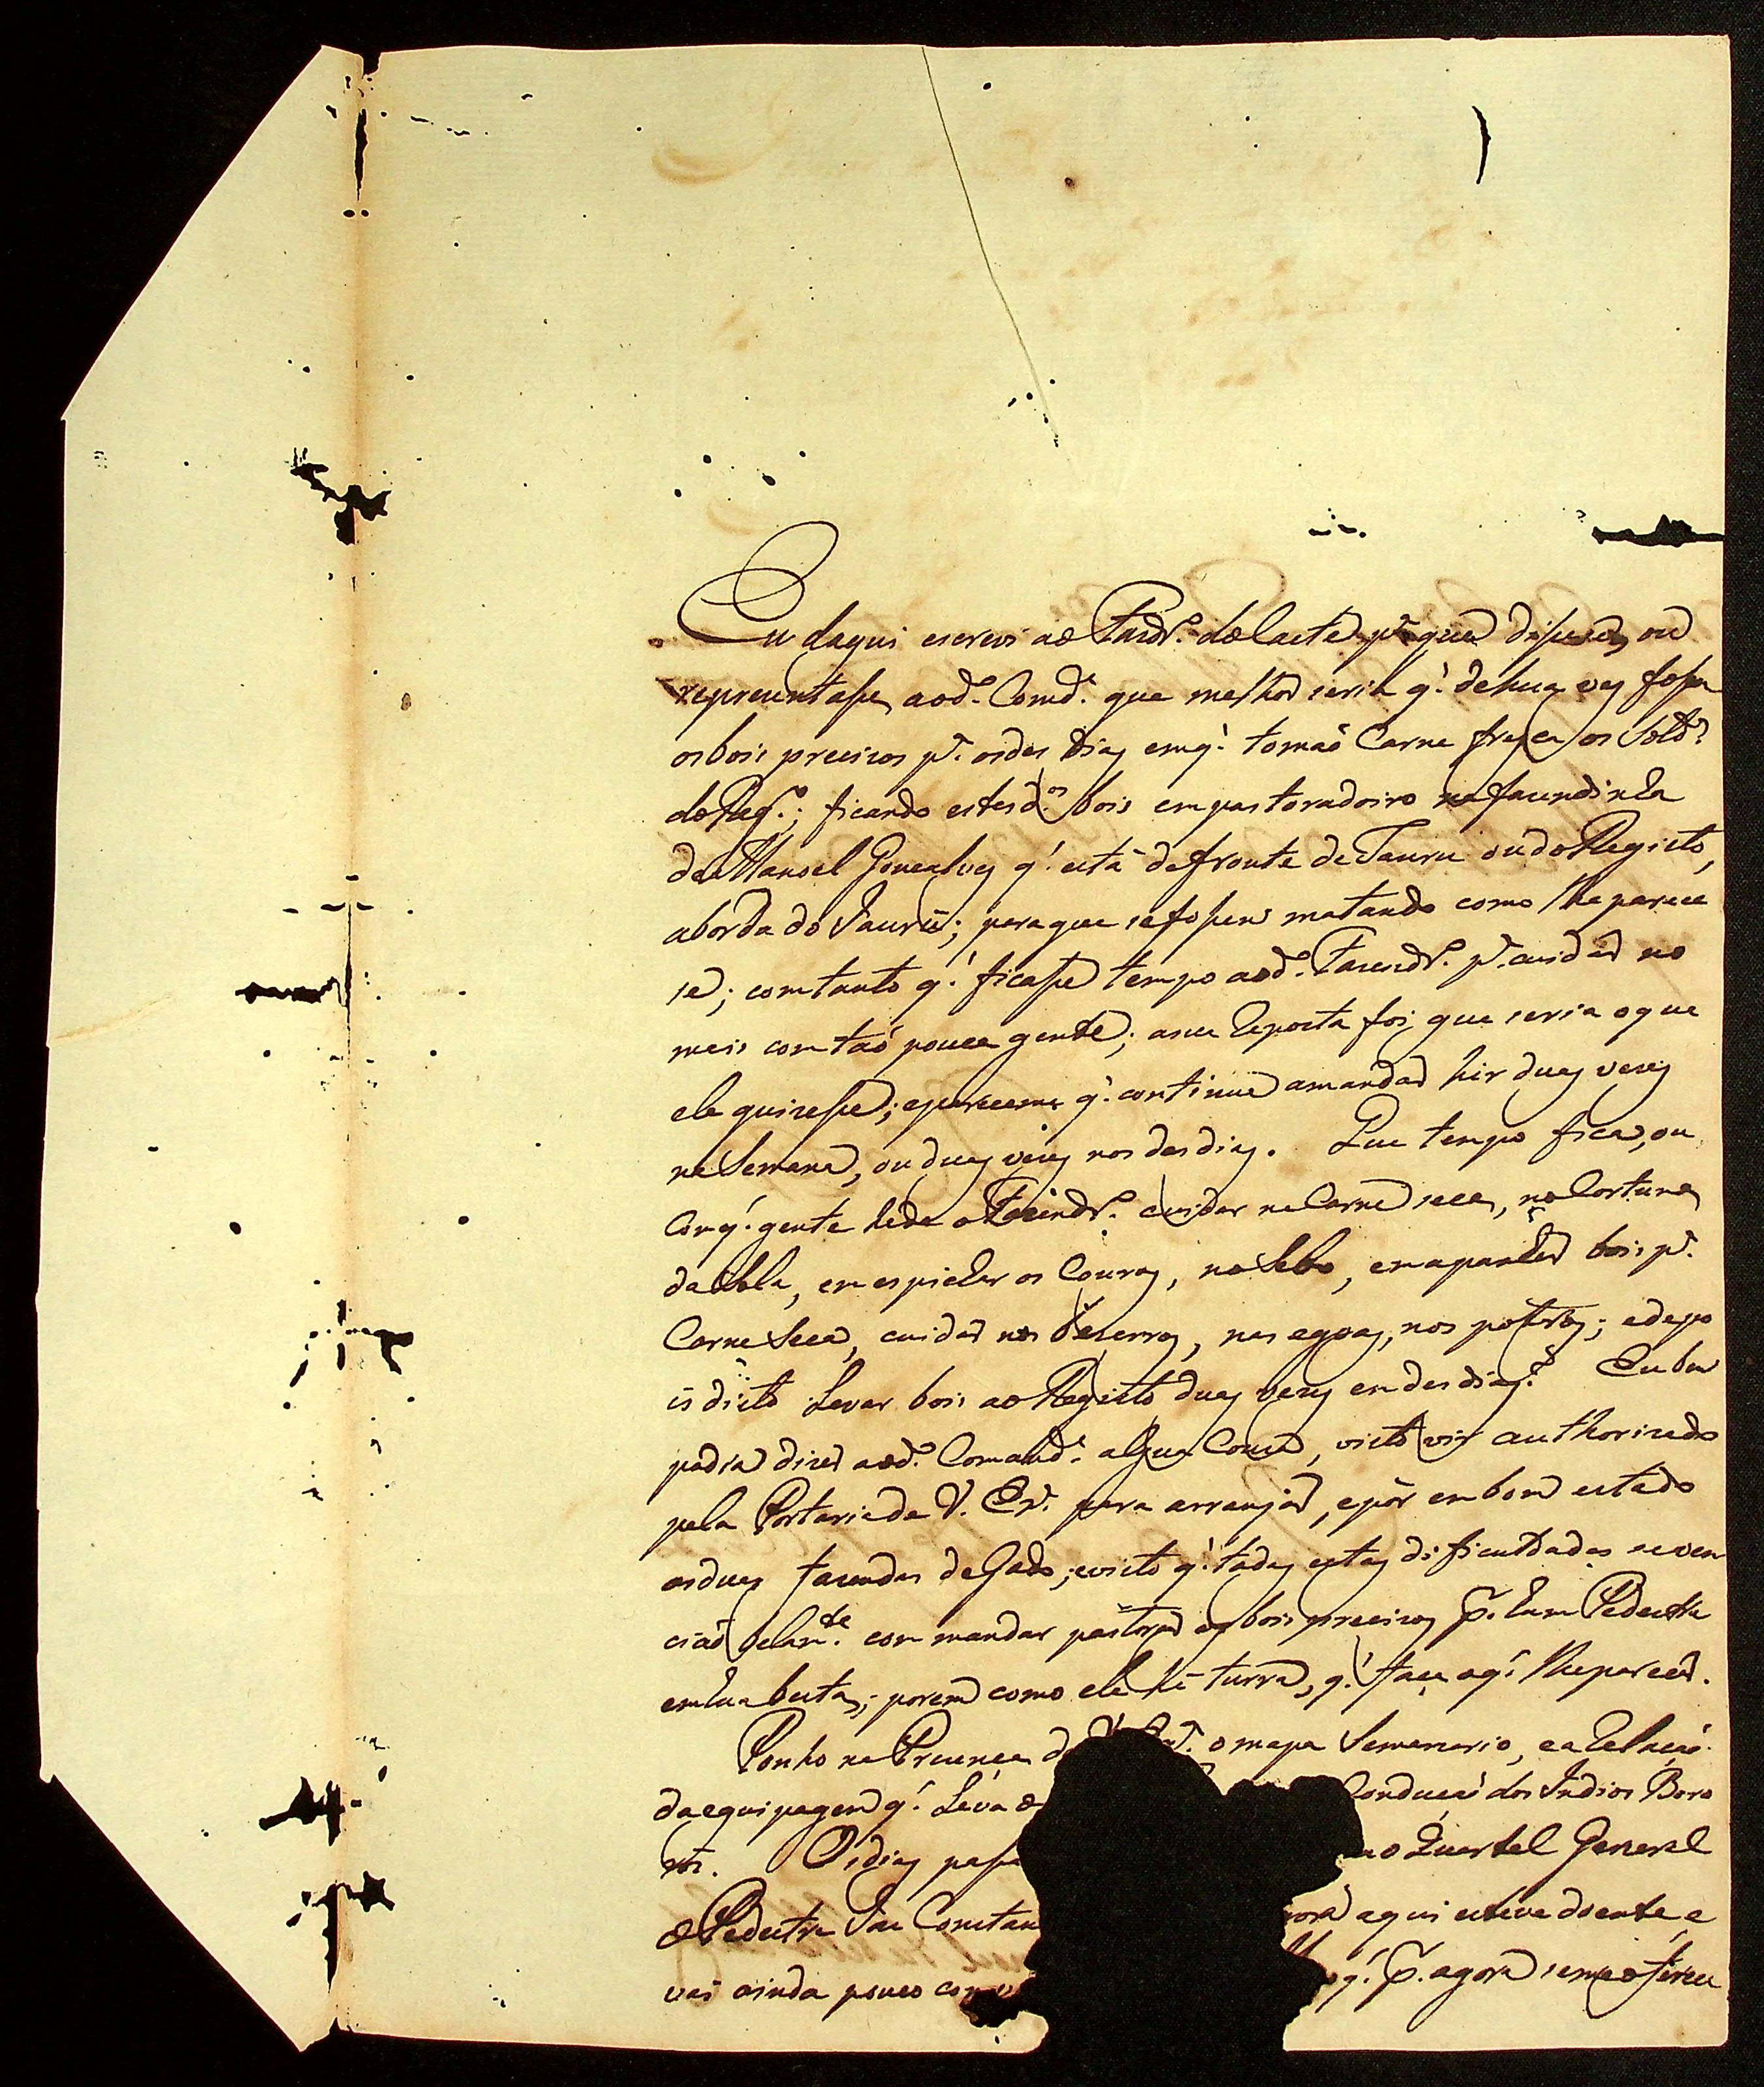 Eu daqui escrevi ao Fazdr.º do Caeté p.ª que diseçe, ou
reprezentaſse ao d.º Comd.e que melhor seria q.' de hua vez foſsem
os bois precizos p.ª os dez dias em q.' tomaõ Carne fresca os Sold.os
do Reg.º; ficando estes d.os bois em pastoradoiro na fazendinha
de Manoel Gonçalves q.' está defronte de Jauru ou do Registo,
a borda do Jaurú; para que se foſsem matando como lhe parece
se; com tanto q.' ficaſse tempo ao d.º Fazendr.º p.ª cuidar no
mais com taõ pouca gente; a sua Reposta foi, que seria o que
ele quizeſse; e pareceme q.' continua a mandar hir duas vezes
na Semana, ou duas vezes nos des dias. Que tempo fica, ou
Com q.' gente hade o Fazendr.º cuidar na Carne seca, no Cortume
da Sola, em espichar os Couros, no Sebo, em apanhar bois p.ª
Carne Seca, cuidar nos Bezerros, nas egoas, nos potros; e depo
is disto Levar bois ao Registo duas vezes em des dias? Eu bem
podia dizer ao d.º Comand.e algua Couza, visto vir authorizado
pela Portaria de V. Ex.ª para arranjar, e pôr em bom estado
as duas fazendas de Gado; visto q.' todas estas dificuldades se ven
ciaõ com mandar pastorar os bois precizos p. hum Pedestre
em hua besta; porem como ele hé turra, q.' faça o q.' lhe parecer.
Ponho na Prezença de V. Ex.ª o mapa Semanario, e a Relaçaõ
da equipagem q.' Leva o Conduçaõ dos Indios Boro
ros. Os dias paſsa ao Quartel General
o Pedestre Joze Constan aqui esteve doente, e
vai ainda pouco con q.' p. agora se me ofrece